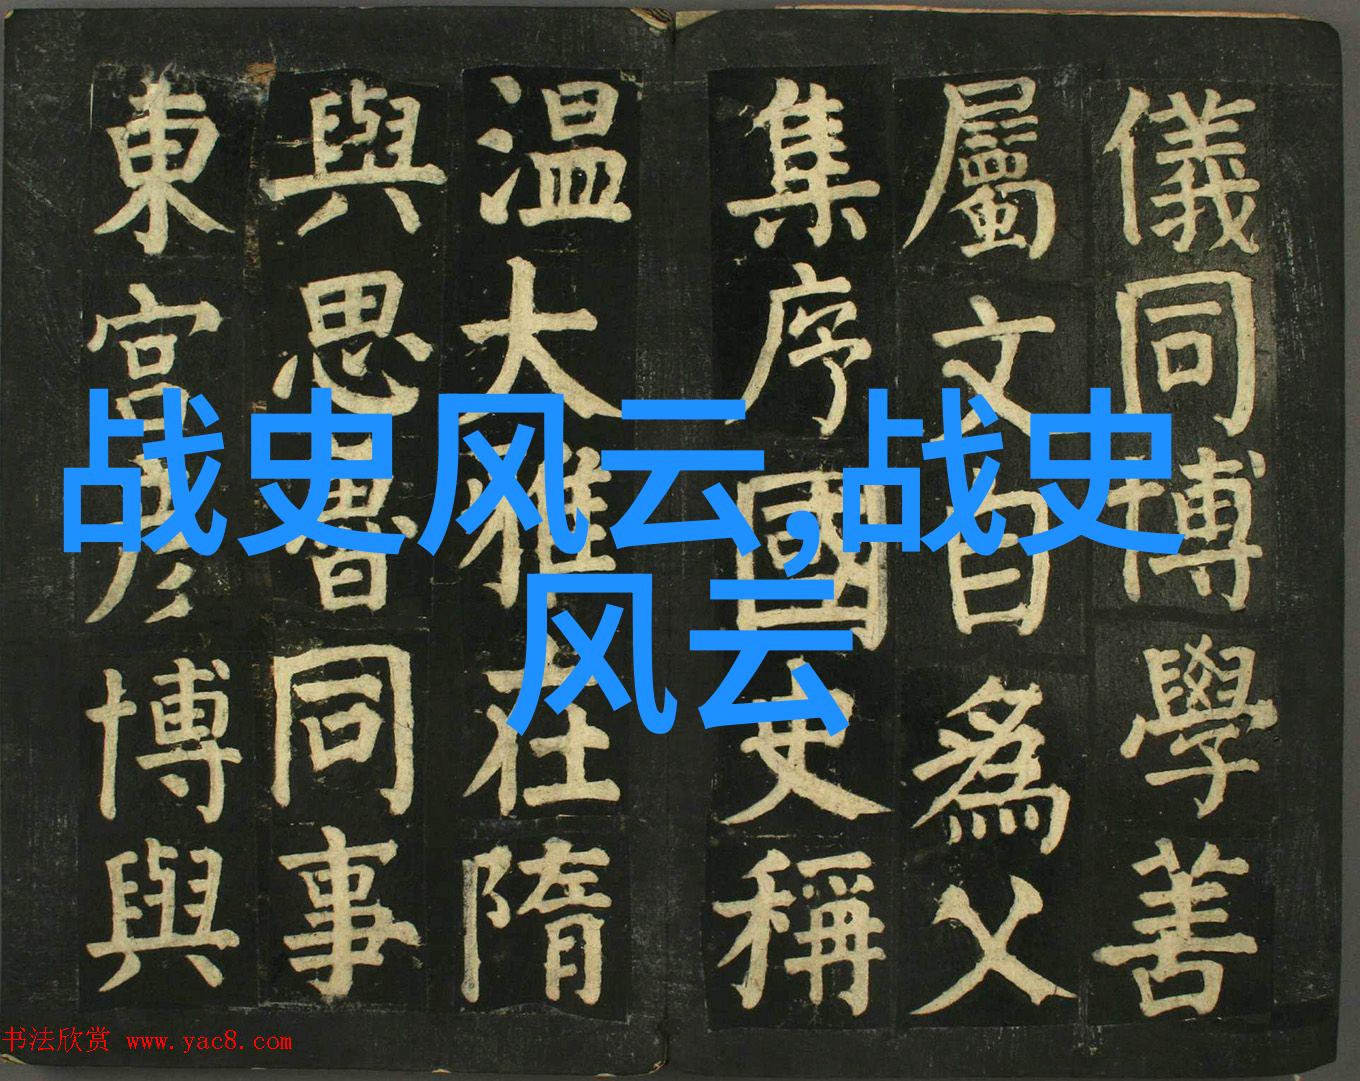 战史风云,战史
风云
儀同博學善
屬文自為父
集序國史稱
温大雅在隋
與思魯同事
東宮彦博與
书法欣赏 www.yac8.com